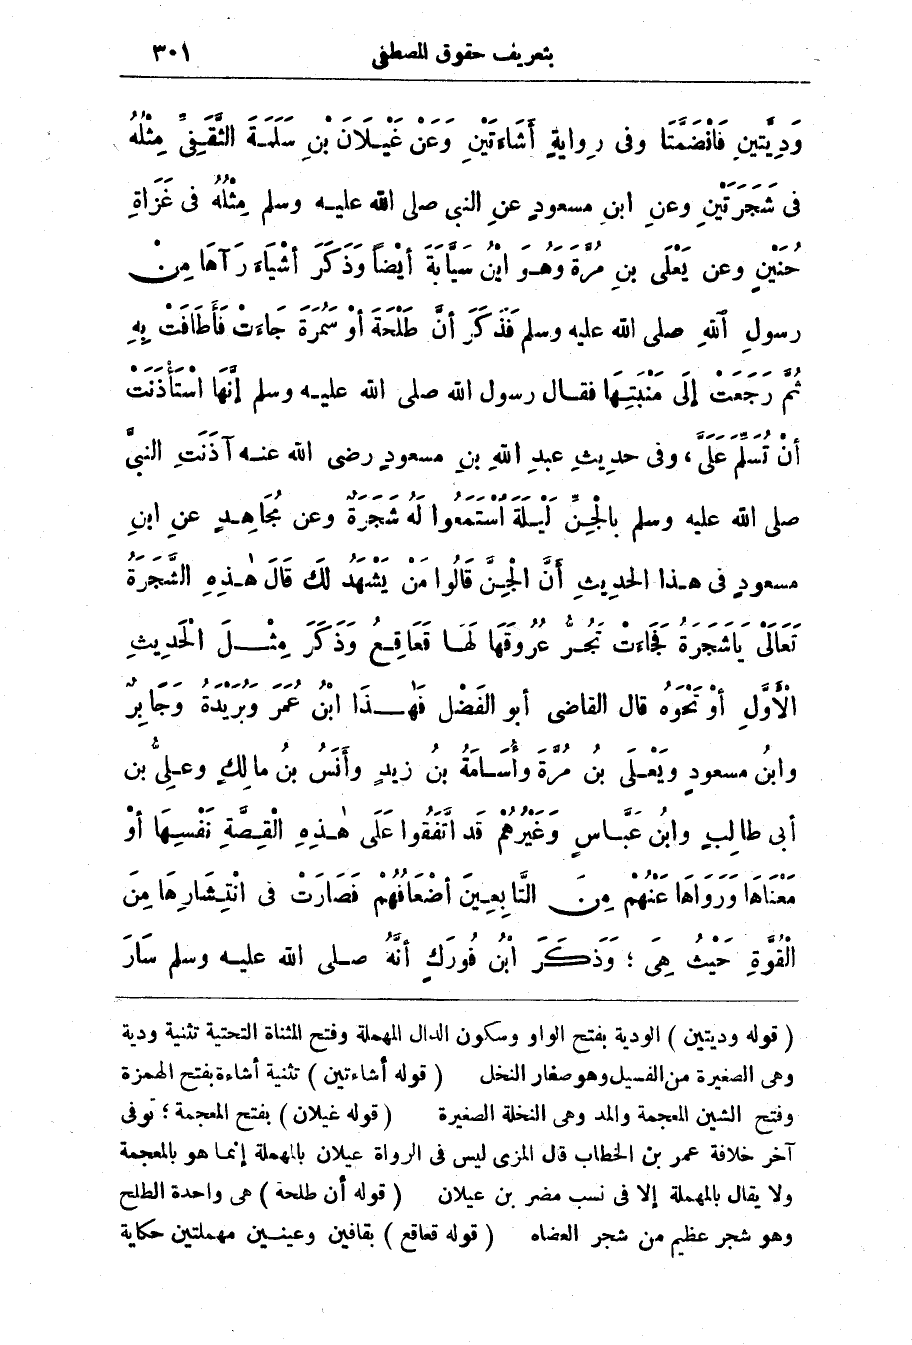 بتعريف حقوق المصطفى ٣٠١
وَدِيَّتينِ فَانْضَمَّتَا وفى رِوايةٍ أَشَاءَتَيْنِ وَعَنْ غَيْلَانَ بْنِ سَلَمَةَ الثَّقَفِيِّ مِثْلُهُ
فى شَجَرَتَيْنِ وعنِ ابنِ مسعودٍ عنِ النبى صلى الله عليه وسلم مِثْلُهُ فى غَزَاةِ
حُنَيْنٍ وعن يَعْلَى بنِ مُرَّةَ وَهُوَ ابْنُ سَيَّابَةَ أيْضاً وَذَكَرَ أشْيَاءَ رَآهَا مِنْ
رسولِ اللهِ صلى الله عليه وسلم فَذَكَرَ أنَّ طَلْحَةً أوْ سَمُرَةً جَاءَتْ فَأَطَافَتْ بِهِ
ثُمَّ رَجَعَتْ إلَى مَنْبَتِهَا فقال رسول الله صلى الله عليه وسلم إنَّهَا اسْتَأْذَنَتْ
أنْ تُسَلِّمَ عَلَىَّ، وفى حديثِ عبدِ اللهِ بنِ مسعودٍ رضى الله عنه آذَنَتِ النبيَّ
صلى الله عليه وسلم بالْجِنِّ لَيْلَةَ اسْتَمَعُوا لَهُ شَجَرَةٌ وعن مُجَاهِدٍ عنِ ابنِ
مسعودٍ فى هذا الحديثِ أَنَّ الْجِنَّ قَالُوا مَنْ يَشْهَدُ لَكَ قَالَ هٰذِهِ الشَّجَرَةُ
تَعَالَىْ يَاشَجَرَةُ فَجَاءَتْ تَجُرُّ عُرُوقَهَا لَهَا قَعَاقِعُ وَذَكَرَ مِثْلَ الْحَدِيثِ
الْأَوَّلِ أوْ نَحْوَهُ قال القاضى أبو الفَضْلِ فَهٰذَا ابْنُ عُمَرَ وَبُرَيْدَةُ وَجَابِرٌ
وابنُ مسعودٍ ويَعْلَى بنُ مُرَّةَ وأُسَامَةُ بنُ زيدٍ وأَنَسُ بنُ مالِكٍ وعلىُّ بن
أبى طالِبٍ وابنُ عَبَّاسٍ وَغَيْرُهُمْ قد اتَّفَقُوا عَلَى هٰذِهِ الْقِصَّةِ نَفْسِهَا أوْ
مَعْنَاهَا وَرَوَاهَا عَنْهُمْ مِنَ التَّابِعِينَ أضْعَافُهُمْ فَصَارَتْ فى انْتِشَارِهَا مِنَ
الْقُوَّةِ حَيْثُ هِىَ ؛ وَذَكَرَ ابْنُ فُورَكٍ أنَّهُ صلى الله عليه وسلم سَارَ
( قوله وديتين ) الودية بفتح الواو وسكون الدال المهملة وفتح المثناة التحتية تثنية ودية
وهى الصغيرة من الفسيل وهو صغار النخل ( قوله أشاءتين ) تثنية أشاءة بفتح الهمزة
وفتح الشين المعجمة والمد وهى النخلة الصغيرة ( قوله غيلان ) بفتح المعجمة ؛ توفى
آخر خلافة عمر بن الخطاب قال المزى ليس فى الرواة عيلان بالمهملة إنما هو بالمعجمة
ولا يقال بالمهملة إلا فى نسب مضر بن عيلان ( قوله أن طلحة ) هى واحدة الطلح
وهو شجر عظيم من شجر العضاه ( قوله قعاقع ) بقافين وعينين مهملتين حكاية